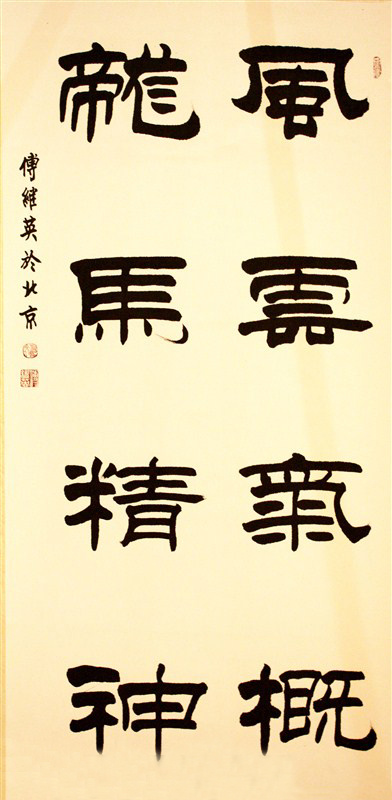 風雲氣概
龍馬精神
傅繼英於北京